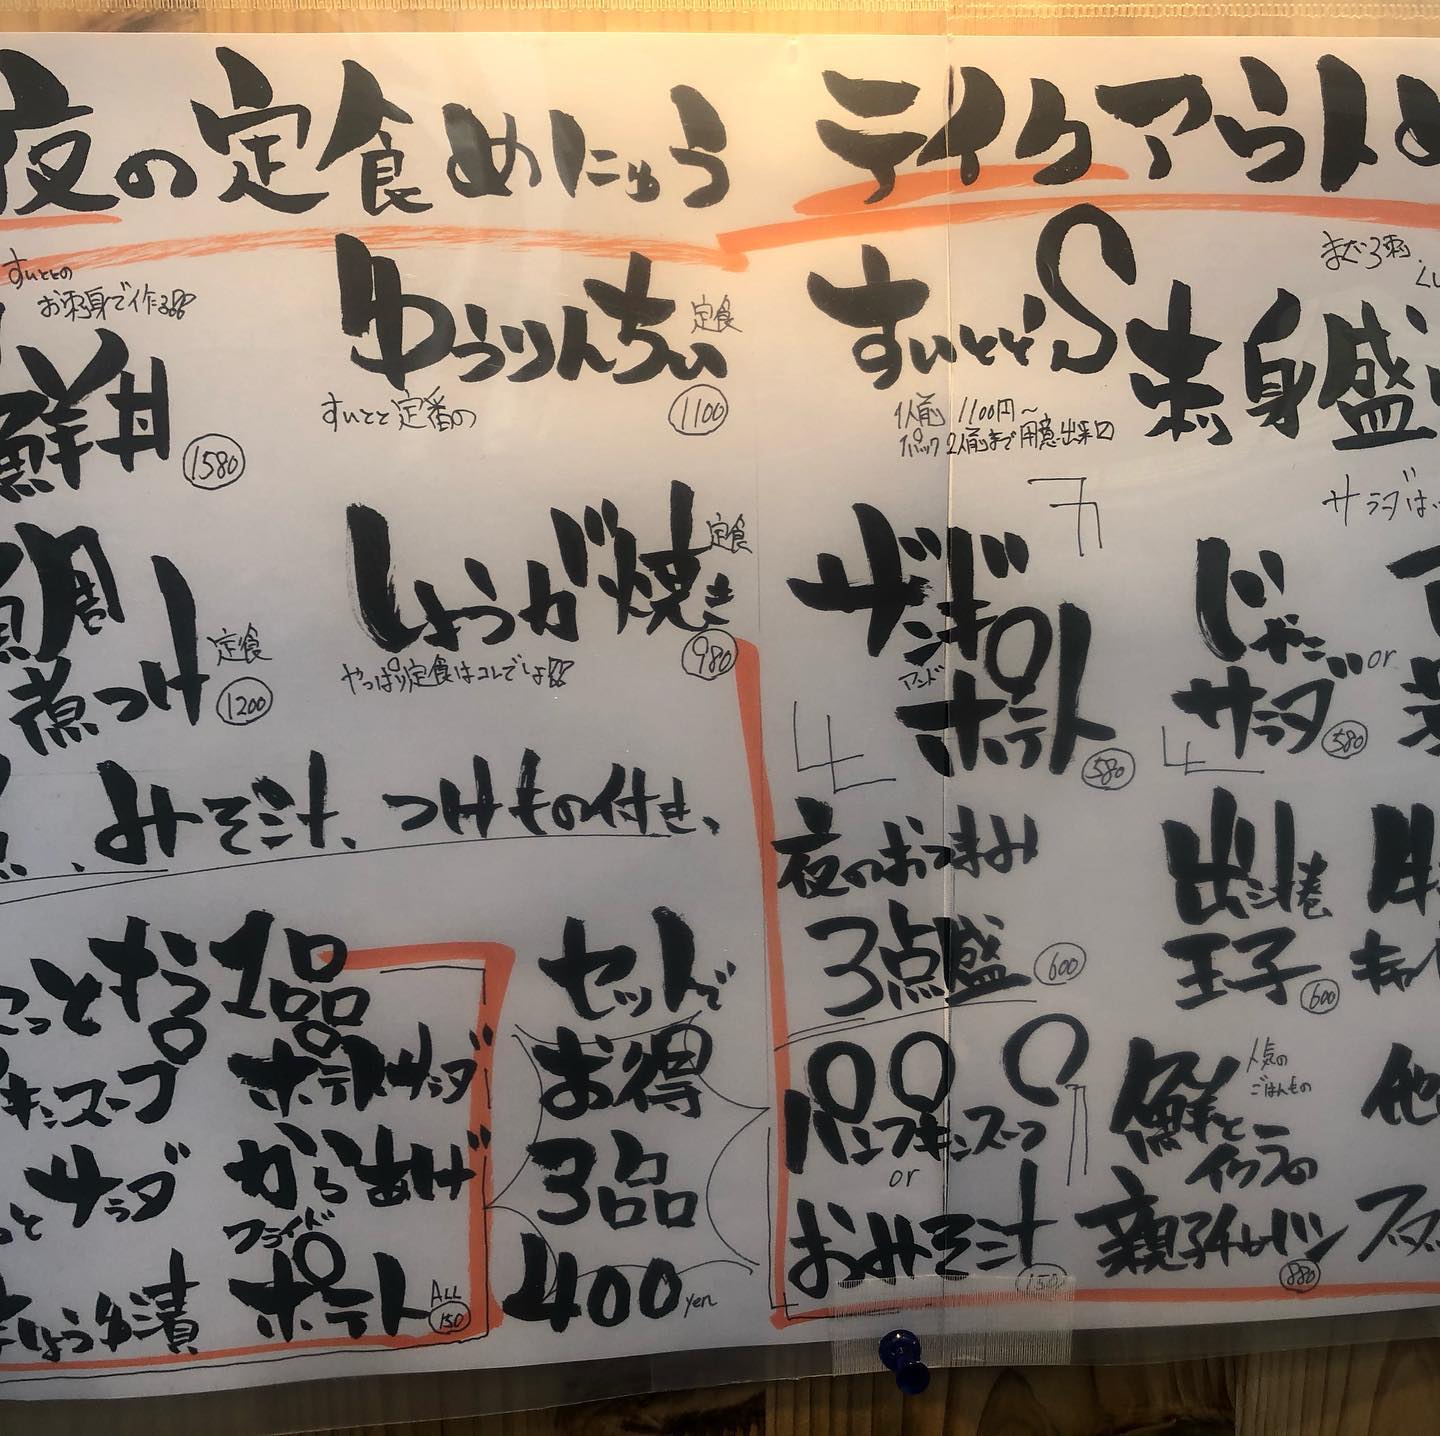 夜の定食めにゅう
すいととの
お刺身で作る!!
鮮丼
1580
ゆうりんちぃ
定食
すいとと定番の
1100
煮つけ
定食
1200
しょうが焼き
定食
やっぱり定食はコレでしょ!!
980
みそ汁、つけもの付き、
っともう1品
キンスープ
ポテトサラダ
サラダ
からあげ
フライド
ポテト
しょうゆ漬
ALL
150
セットで
お得
3品
400
yen
テイクアウトめ
すいととS
刺身盛
まぐろ刺
1人前 1100円~
パック 2人前まで用意出来□
サラダは
ザンギ
アンド
ポテト
580
じゃこ
サラダ
580
or
夜のおつまみ
3点盛
600
出汁巻
玉子
600
パンプキンスープ
or
おみそ汁
150
人気の
ごはんもの
鮮と
イクラの
親子チャーハン
880